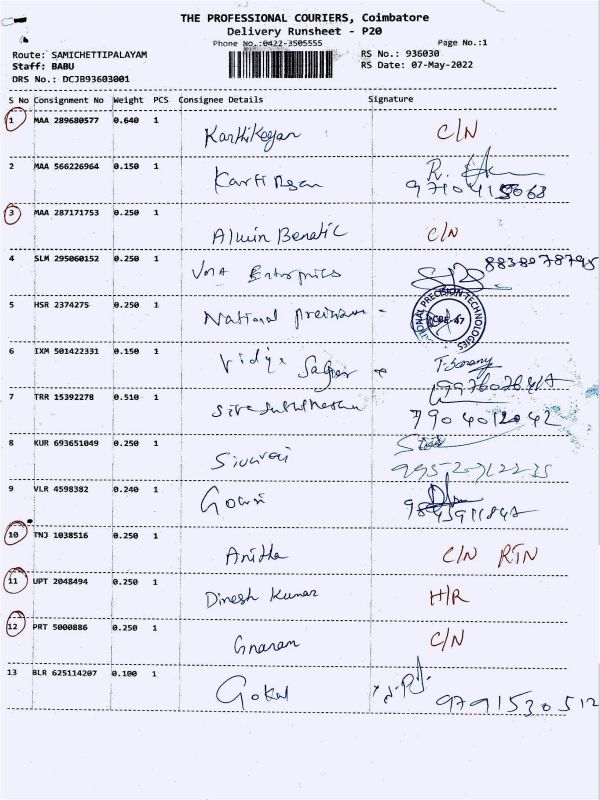 THE PROFESSIONAL COURIERS, Coimbatore
Delivery Runsheet - P20
Phone No.:0422-3505555 Page No.:1
Route: SAMICHETTIPALAYAM RS No.: 936030
Staff: BABU RS Date: 07-May-2022
DRS No.: DCJB93603001
S No Consignment No Weight PCS Consignee Details Signature
1 MAA 289680577 0.640 1 Karthikeyan C/N
2 MAA 566226964 0.150 1 R.
3 MAA 287171753 0.250 1 Alwin C/N
4 SLM 295060152 0.250 1 8838078795
5 HSR 2374275 0.250 1 National NATIONAL PRECISION TECHNOLOGIES CBE-47
6 IXM 501422331 0.150 1 Vidya Sagar
7 TRR 15392278 0.510 1 7904012042
8 KUR 693651049 0.250 1 Sivaraj
9 VLR 4598382 0.240 1 Gowri
10 TNJ 1038516 0.250 1 Anitha C/N RTN
11 UPT 2048494 0.250 1 Dinesh Kumar H/R
12 PRT 5000886 0.250 1 Gnanam C/N
13 BLR 625114207 0.100 1 Gokul 9791530512